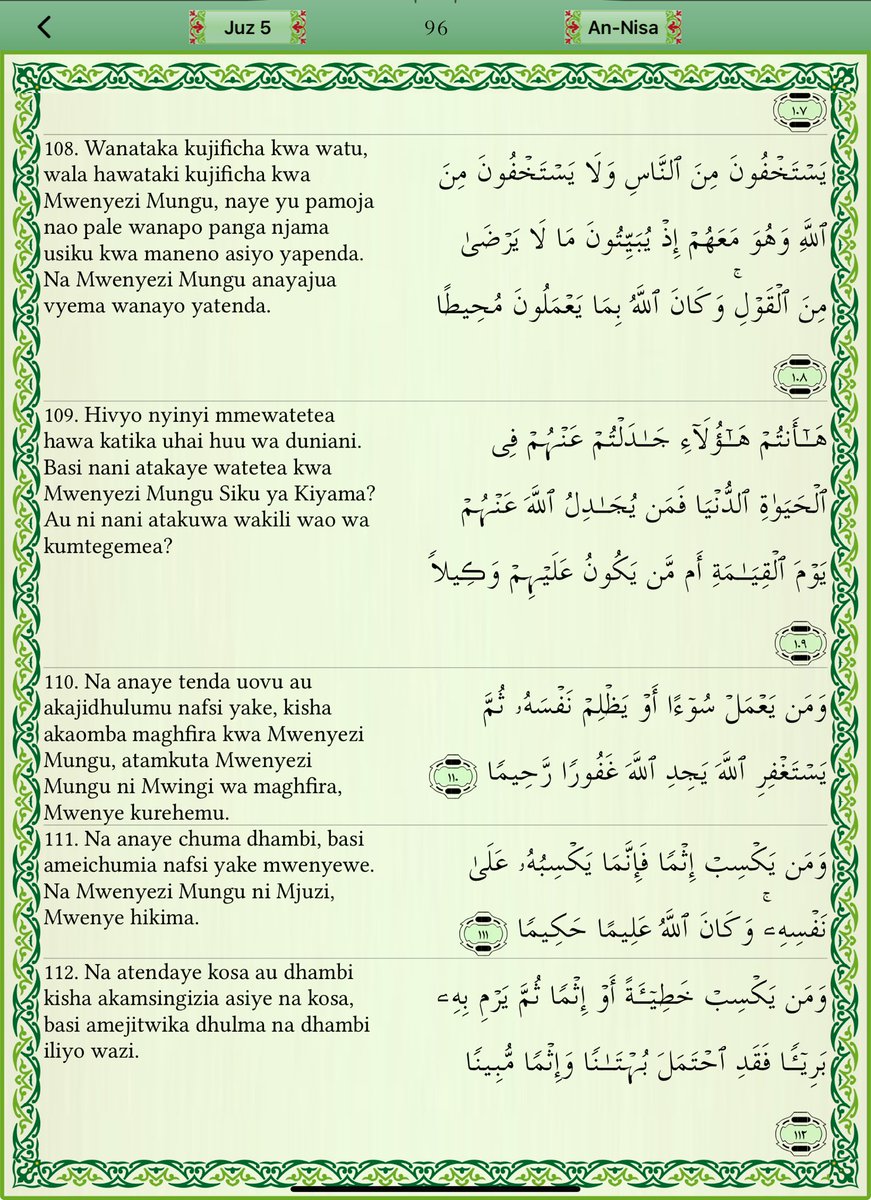 Juz 5
96
An-Nisa
١٠٧
108. Wanataka kujificha kwa watu,
wala hawataki kujificha kwa
Mwenyezi Mungu, naye yu pamoja
nao pale wanapo panga njama
usiku kwa maneno asiyo yapenda.
Na Mwenyezi Mungu anayajua
vyema wanayo yatenda.
يَسۡتَخۡفُونَ مِنَ ٱلنَّاسِ وَلَا يَسۡتَخۡفُونَ مِنَ
ٱللَّهِ وَهُوَ مَعَهُمۡ إِذۡ يُبَيِّتُونَ مَا لَا يَرۡضَىٰ
مِنَ ٱلۡقَوۡلِۚ وَكَانَ ٱللَّهُ بِمَا يَعۡمَلُونَ مُحِيطًا
١٠٨
109. Hivyo nyinyi mmewatetea
hawa katika uhai huu wa duniani.
Basi nani atakaye watetea kwa
Mwenyezi Mungu Siku ya Kiyama?
Au ni nani atakuwa wakili wao wa
kumtegemea?
هَـٰٓأَنتُمۡ هَـٰٓؤُلَآءِ جَـٰدَلۡتُمۡ عَنۡهُمۡ فِى
ٱلۡحَيَوٰةِ ٱلدُّنۡيَا فَمَن يُجَـٰدِلُ ٱللَّهَ عَنۡهُمۡ
يَوۡمَ ٱلۡقِيَـٰمَةِ أَم مَّن يَكُونُ عَلَيۡهِمۡ وَڪِيلاً
١٠٩
110. Na anaye tenda uovu au
akajidhulumu nafsi yake, kisha
akaomba maghfira kwa Mwenyezi
Mungu, atamkuta Mwenyezi
Mungu ni Mwingi wa maghfira,
Mwenye kurehemu.
وَمَن يَعۡمَلۡ سُوٓءًا أَوۡ يَظۡلِمۡ نَفۡسَهُۥ ثُمَّ
يَسۡتَغۡفِرِ ٱللَّهَ يَجِدِ ٱللَّهَ غَفُورًا رَّحِيمًا ١١٠
111. Na anaye chuma dhambi, basi
ameichumia nafsi yake mwenyewe.
Na Mwenyezi Mungu ni Mjuzi,
Mwenye hikima.
وَمَن يَكۡسِبۡ إِثۡمًا فَإِنَّمَا يَكۡسِبُهُۥ عَلَىٰ
نَفۡسِهِۦۚ وَكَانَ ٱللَّهُ عَلِيمًا حَكِيمًا ١١١
112. Na atendaye kosa au dhambi
kisha akamsingizia asiye na kosa,
basi amejitwika dhulma na dhambi
iliyo wazi.
وَمَن يَكۡسِبۡ خَطِيٓـَٔةً أَوۡ إِثۡمًا ثُمَّ يَرۡمِ بِهِۦ
بَرِيٓـًٔا فَقَدِ ٱحۡتَمَلَ بُہۡتَـٰنًا وَإِثۡمًا مُّبِينًا
١١٢